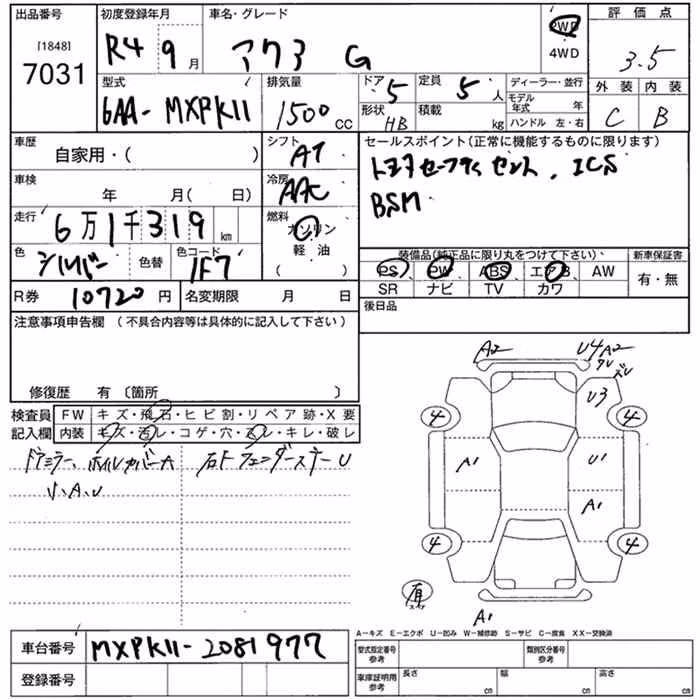 出品番号
[1848]
7031
初度登録年月
R4 9 月
車名・グレード
アクア G
2WD
4WD
評価点
3.5
外装 内装
C B
型式
6AA-MXPK11
排気量
1500 cc
ドア 5
定員 5 人
形状 HB
積載 kg
ディーラー・並行
モデル年式 年
ハンドル 左・右
車歴
自家用・( )
シフト
AT
セールスポイント(正常に機能するものに限ります)
トヨタセーフティセンス、ICS
BSM
車検
年 月( 日)
冷房
AAC
走行
6万1千319 km
燃料
ガソリン
軽油
( )
色
シルバー
色替
色コード
1F7
装備品(純正品に限り丸をつけて下さい)
PS PW ABS エアB AW
SR ナビ TV カワ
新車保証書
有・無
R券 10720 円
名変期限 月 日
後日品
注意事項申告欄 (不具合内容等は具体的に記入して下さい)
修復歴 有 〔箇所 〕
検査員記入欄
FW キズ・飛石・ヒビ割・リペア跡・X要
内装 キズ・汚レ・コゲ・穴・スレ・キレ・破レ
ドアミラー、ホイルカバーA
右Fフェンダーステー U
V、A、U
A2
U4 A2
ズレ
U3
4
4
A1
U1
A1
4
4
A1
A-キズ E-エクボ U-凹み W-補修跡 S-サビ C-腐食 XX-交換済
車台番号 MXPK11-2081977
登録番号
型式指定番号 参考
類別区分番号 参考
車庫証明用 参考
長さ cm
幅 cm
高さ cm